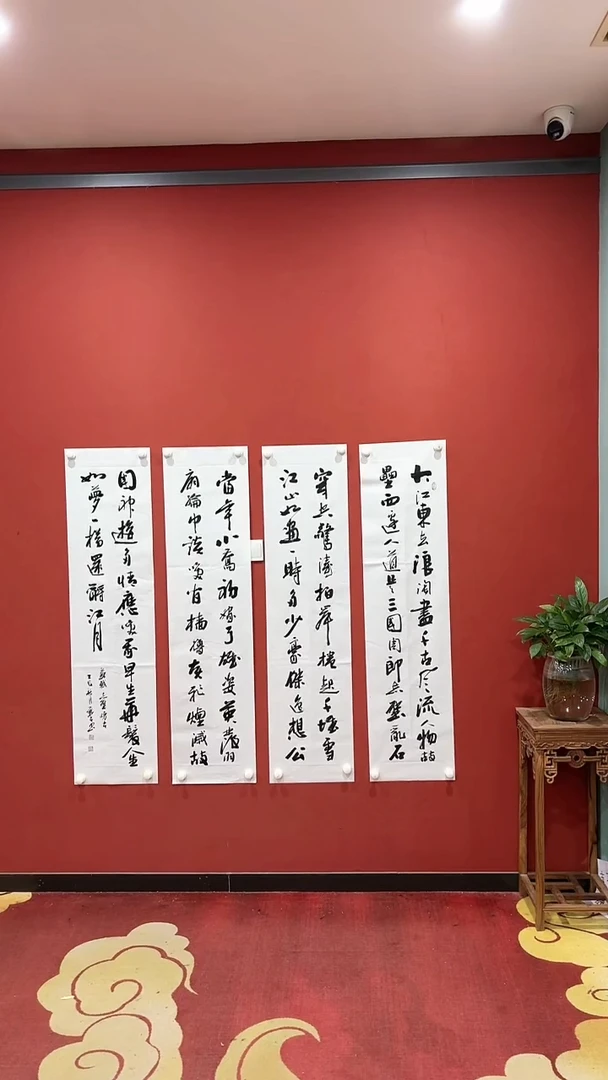 大江東去浪淘盡千古风流人物故
壘西邊人道是三國周郎赤壁亂石
穿空驚濤拍岸捲起千堆雪
江山如畫一時多少豪傑遥想公
當年小喬初嫁了雄姿英發羽
扇綸巾談笑間檣櫓灰飛煙滅故
國神遊多情應笑我早生華髮人生
如夢一樽還酹江月
蘇軾赤壁懷古